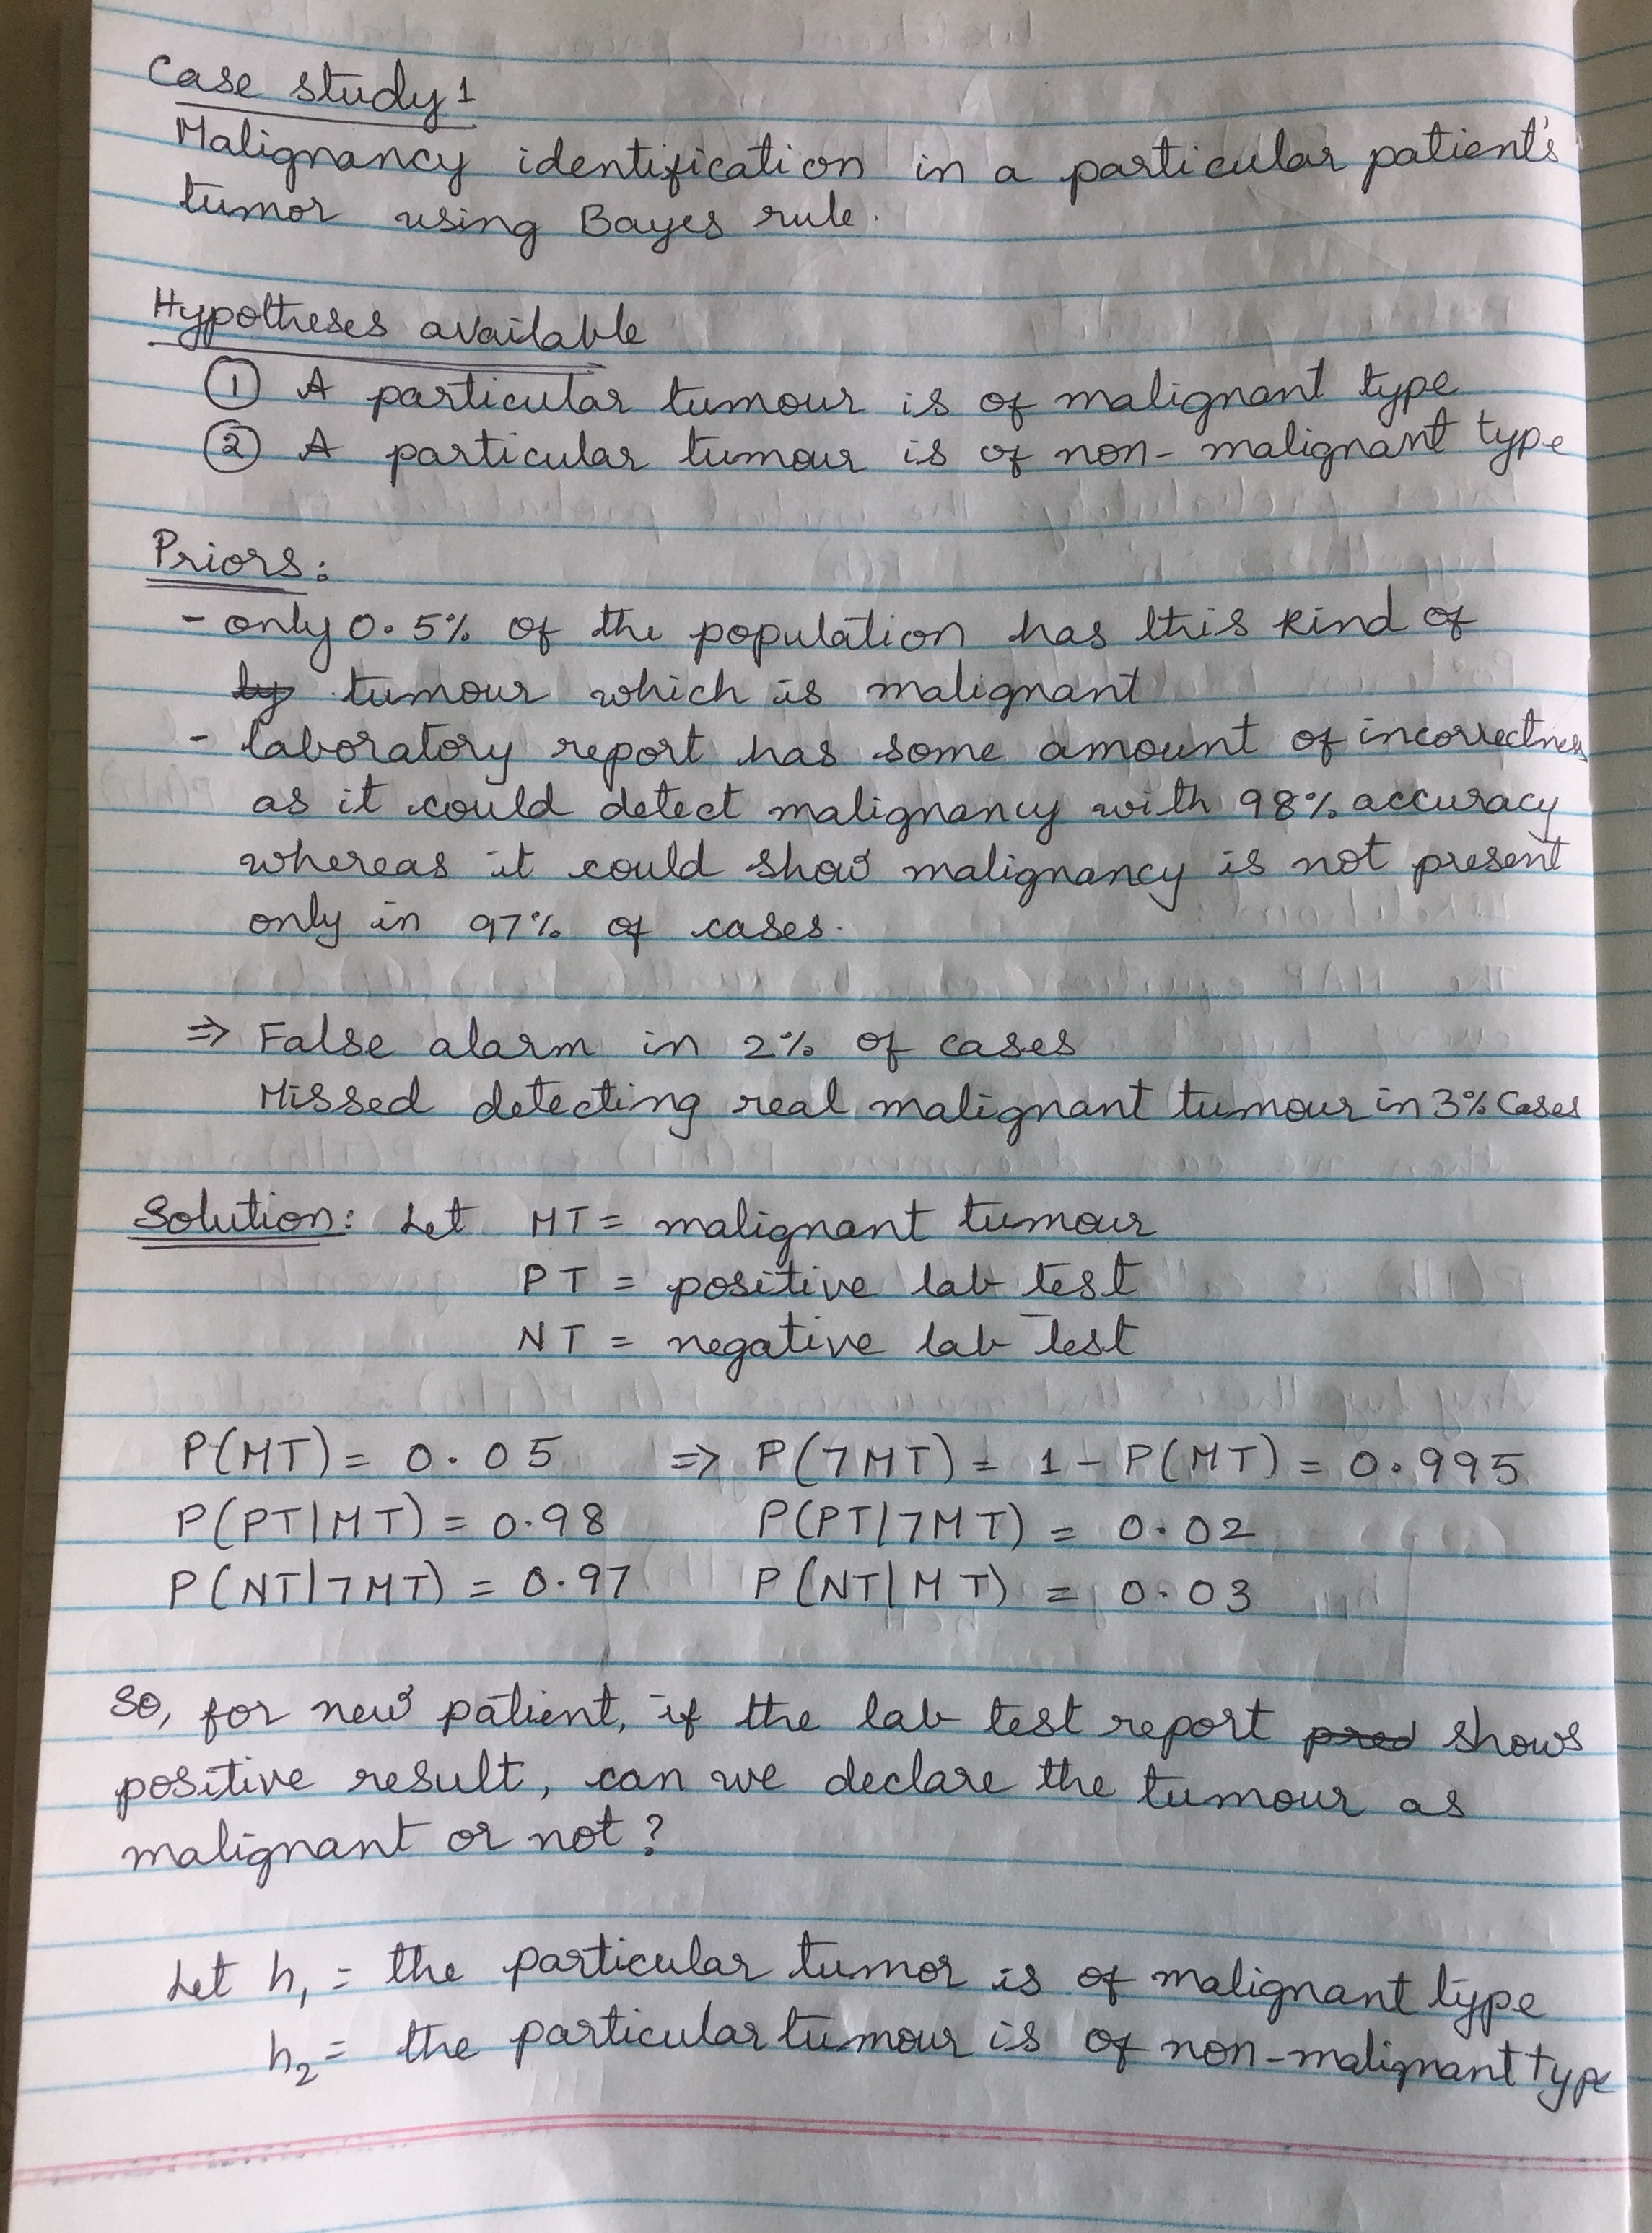 Case study 1
Malignancy identification in a particular patient's
tumor using Bayes rule.
Hypotheses available
① A particular tumour is of malignant type
② A particular tumour is of non-malignant type
Priors:
- only 0.5% of the population has this kind of
ty tumour which is malignant
- laboratory report has some amount of incorrectness
as it could detect malignancy with 98% accuracy
whereas it could show malignancy is not present
only in 97% of cases.
⇒ False alarm in 2% of cases
Missed detecting real malignant tumour in 3% cases
Solution: Let MT = malignant tumour
PT = positive lab test
NT = negative lab test
P(MT) = 0.05 ⇒ P(7MT) = 1 - P(MT) = 0.995
P(PT|MT) = 0.98 P(PT|7MT) = 0.02
P(NT|7MT) = 0.97 P(NT|MT) = 0.03
So, for new patient, if the lab test report pred shows
positive result, can we declare the tumour as
malignant or not?
Let h₁ = the particular tumor is of malignant type
h₂ = the particular tumour is of non-malignant type